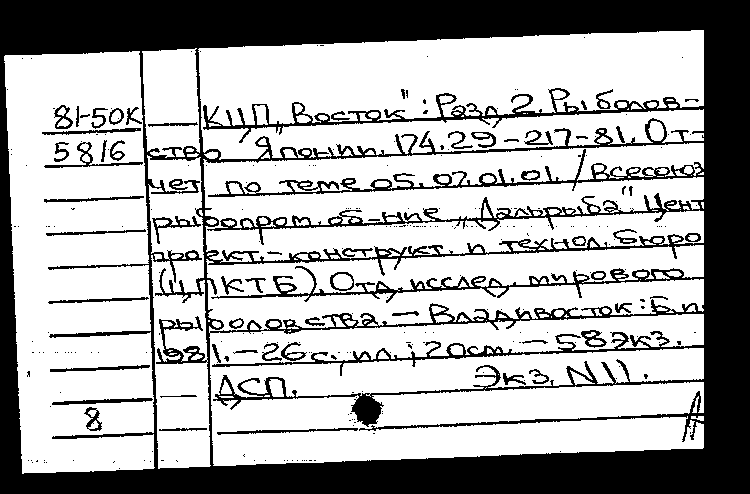 81-50К КЦП „Восток": Разд. 2. Рыболов-
5816 ство Японии. 174.29-217-81. От-
чет по теме 05.07.01.01. / Всесоюз
рыбопром. об-ние „Дальрыба". Цент
проект.-конструкт. и технол. бюро
(ЦПКТБ). Отд. исслед. мирового
рыболовства. — Владивосток: Б.и.
1981. — 26 с., ил.; 20 см. — 58 экз.
ДСП. Экз. N 11.
8